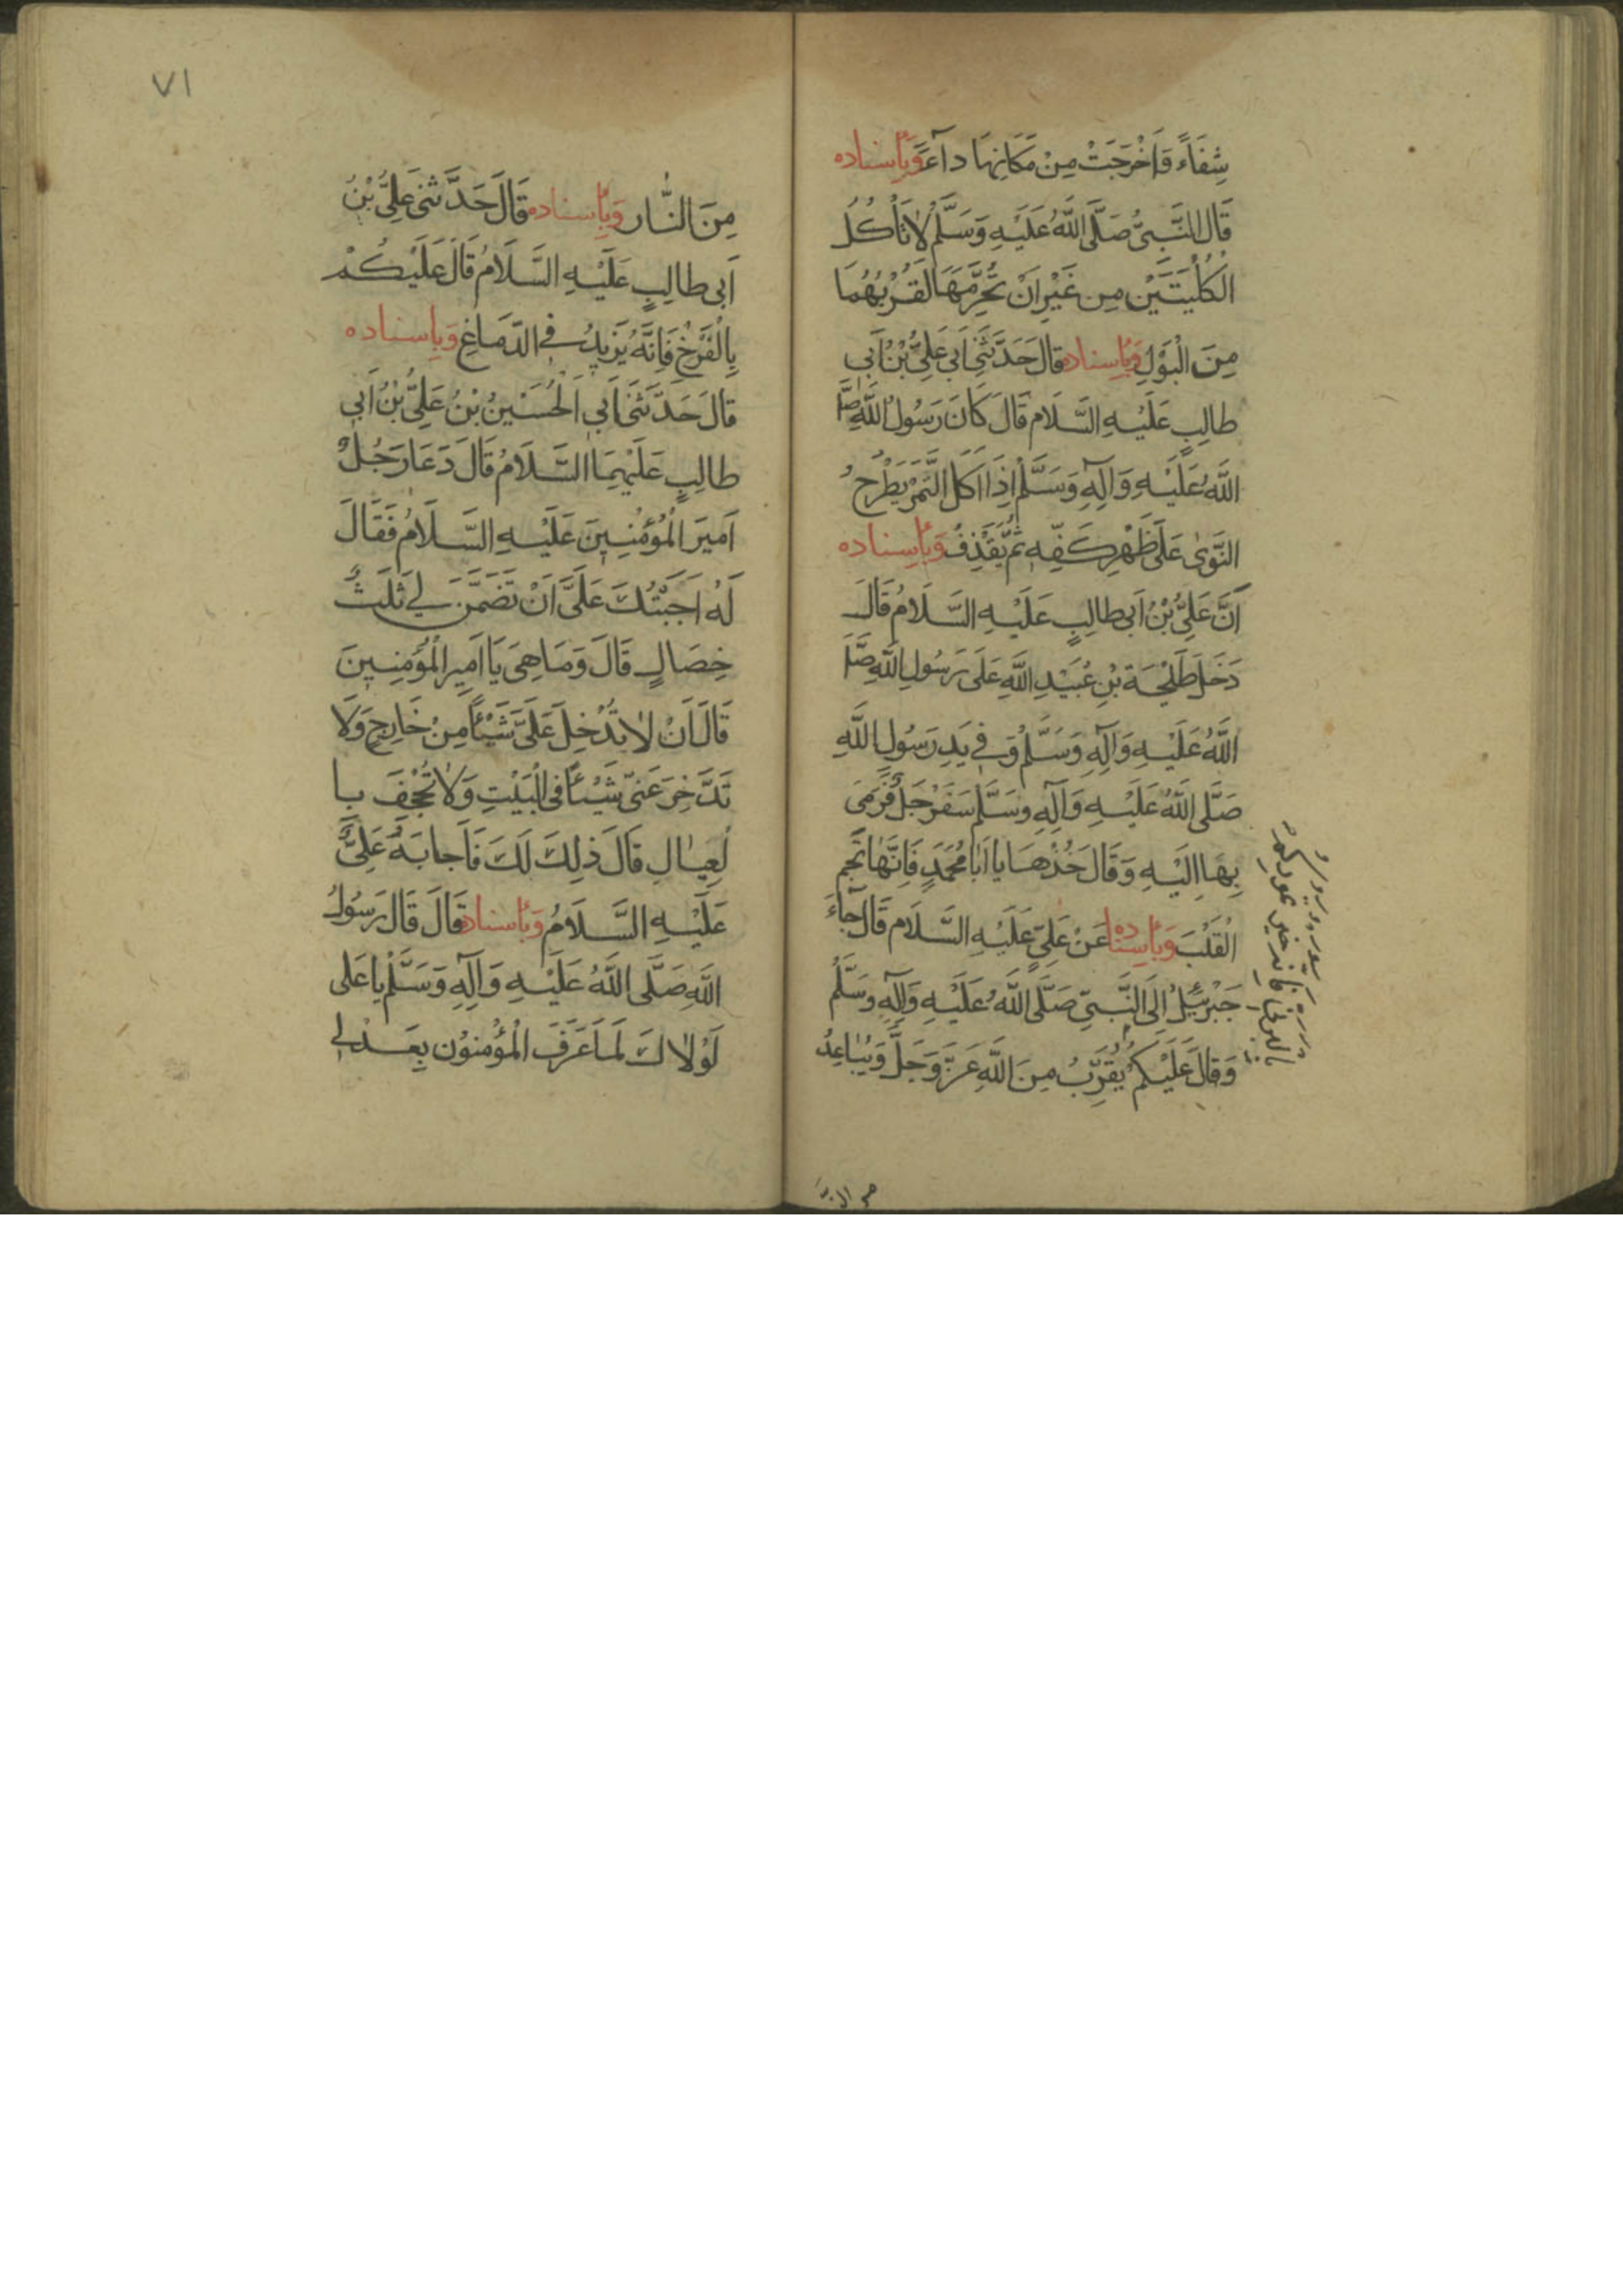 شِفَاءً وَاَخْرَجَتْ مِنْ مَكَانِهَا دآءً وَبِاِسناده
قَالَ النَّبِيُّ صَلَّى اللَّهُ عَلَيْهِ وَسَلَّمْ لاٰ تَأْكُلُ
الْكُلْيَتَيْنِ مِن غَيْرِ اَنْ تُحَرِّمَهَا لِقُرْبِهُمَا
مِنَ الْبَوْلِ وَبِاِسناده قَالَ حَدَّثَنِي اَبي عَلِيُّ بْنُ اَبي
طالِبٍ عَلَيْهِ السَّلَام قَالَ كَانَ رَسُولُ اللَّهِ صَلَّى
اللَّهُ عَلَيْهِ وَآلِهِ وَسَلَّمْ اِذَا اَكَلَ التَّمَرْ يَطْرَحُ
النَّوىٰ عَلَى ظَهْرِ كَفِّهِ ثُمَّ يَقْذِفُ وَبِاِسناده
اَنَّ عَلِيُّ بْنُ اَبي طالِبٍ عَلَيْهِ السَّلَامُ قَالَ
دَخَلَ طَلْحَة بْنِ عُبَيْدِ اللَّهِ عَلَى رَسُولِ اللَّهِ صَلَّى
اللَّهُ عَلَيْهِ وَآلِهِ وَسَلَّمْ وَفي يَدِ رَسُولِ اللَّهِ
صَلَّى اللَّهُ عَلَيْهِ وَآلِهِ وسَلَّم سَفَرْجَلُ فَرَمَى
بِهَا اِلَيْهِ وَقَالَ خُذْهَا يا اَبَا مُحَمَّدٍ فَاِنَّهَا تَجُم
الْقَلْبَ وَبِاِسناده عَنْ عَلِيٍّ عَلَيْهِ السَّلَام قَالَ جآءَ
جَبْرَئيلُ اِلَى النَّبيّ صَلَّى اللَّهُ عَلَيْهِ وَآلِهِ وسَلَّمْ
وَقَالَ عَلَيْكُمْ يُقَرِّبُ مِنَ اللَّهِ عَزَّ وَجَلَّ وَيُبَاعِدُ
٧١
مِنَ النَّار وَبِاِسناده قَالَ حَدَّثَنِي عَلِيُّ بْنُ
اَبي طالِبٍ عَلَيْهِ السَّلَامُ قَالَ عَلَيْكُمْ
بِالْقَرْعِ فَاِنَّهُ يَزِيدُ في الدَّمَاغِ وَبِاِسناده
قَالَ حَدَّثَنَى اَبي الْحُسَيْنُ بْنُ عَلِيُّ بْنُ اَبي
طالِبٍ عَلَيْهِمَا السَّلَامُ قَالَ دَعَا رَجُلٌ
اَميرَ الْمُؤْمِنِينَ عَلَيْهِ السَّلَامُ فَقَالَ
لَهُ اَجَبْتُكَ عَلَيَّ اَنْ تَضْمَنَ لي ثَلٰثُ
خِصَالٍ قَالَ وَمَا هِيَ يَا اَميِرَ الْمُؤْمِنِينَ
قَالَ اَنْ لاٰ تُدْخِلَ عَلَيَّ شَيْئاً مِنْ خَارِجٍ وَلَا
تَدَّخِرَ عَنّي شَيْئاً في الْبَيْتِ وَلاٰ تُجْحِفَ بِا
لْعِيٰالِ قَالَ ذٰلِكَ لَكَ فَاَجابَهُ عَلِيٌّ
عَلَيْهِ السَّلَامُ وَبِاِسناده قَالَ قَالَ رَسُولُ
اللَّهِ صَلَّى اللَّهُ عَلَيْهِ وَآلِهِ وَسَلَّمْ يا عَلى
لَوْلاٰكَ لَمَا عَرَفَ الْمُؤْمِنُون بَعْدي